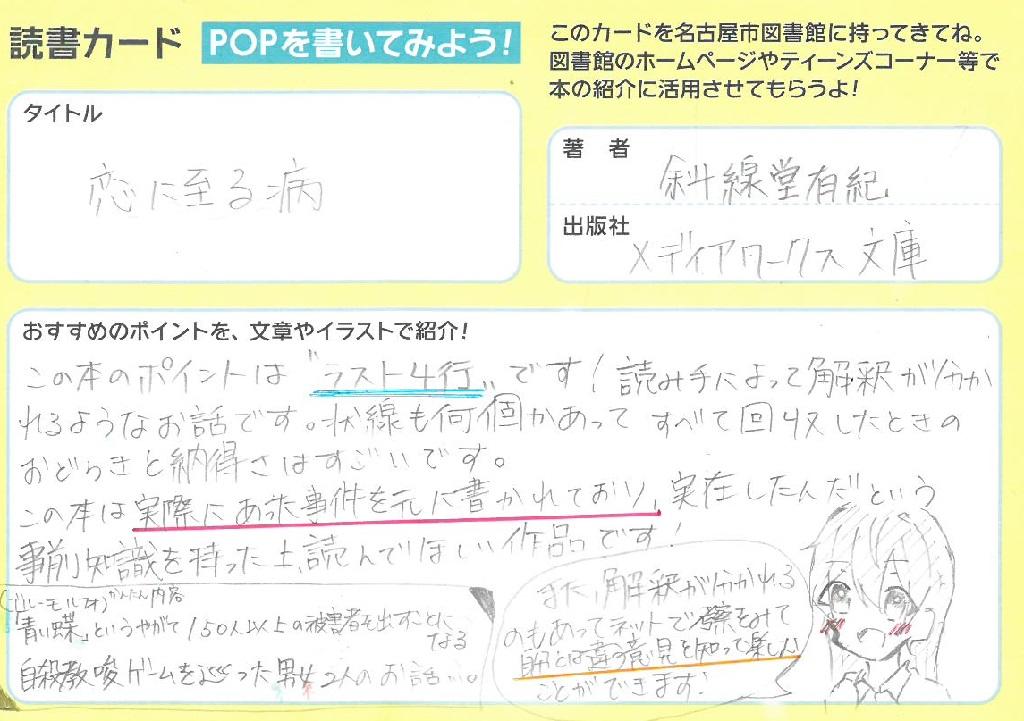 読書カード POPを書いてみよう!
このカードを名古屋市図書館に持ってきてね。
図書館のホームページやティーンズコーナー等で
本の紹介に活用させてもらうよ!
タイトル
恋に至る病
著 者
斜線堂有紀
出版社
メディアワークス文庫
おすすめのポイントを、文章やイラストで紹介!
この本のポイントは"ラスト4行"です!読み手によって解釈が分か
れるようなお話です。状線も何個かあってすべて回収したときの
おどろきと納得さはすごいです。
この本は実際にあった事件を元に書かれており、実在したんだという
事前知識を持った上、読んでほしい作品です!
(ブルーモルフォ)かんたん内容
「青い蝶」というやがて150人以上の被害者を出すことに
なる
自殺教唆ゲームを巡った男女2人のお話…。
また、解釈が分かれる
のもあってネットで考察をみて
自分とは違う意見を知って楽しむ
ことができます!